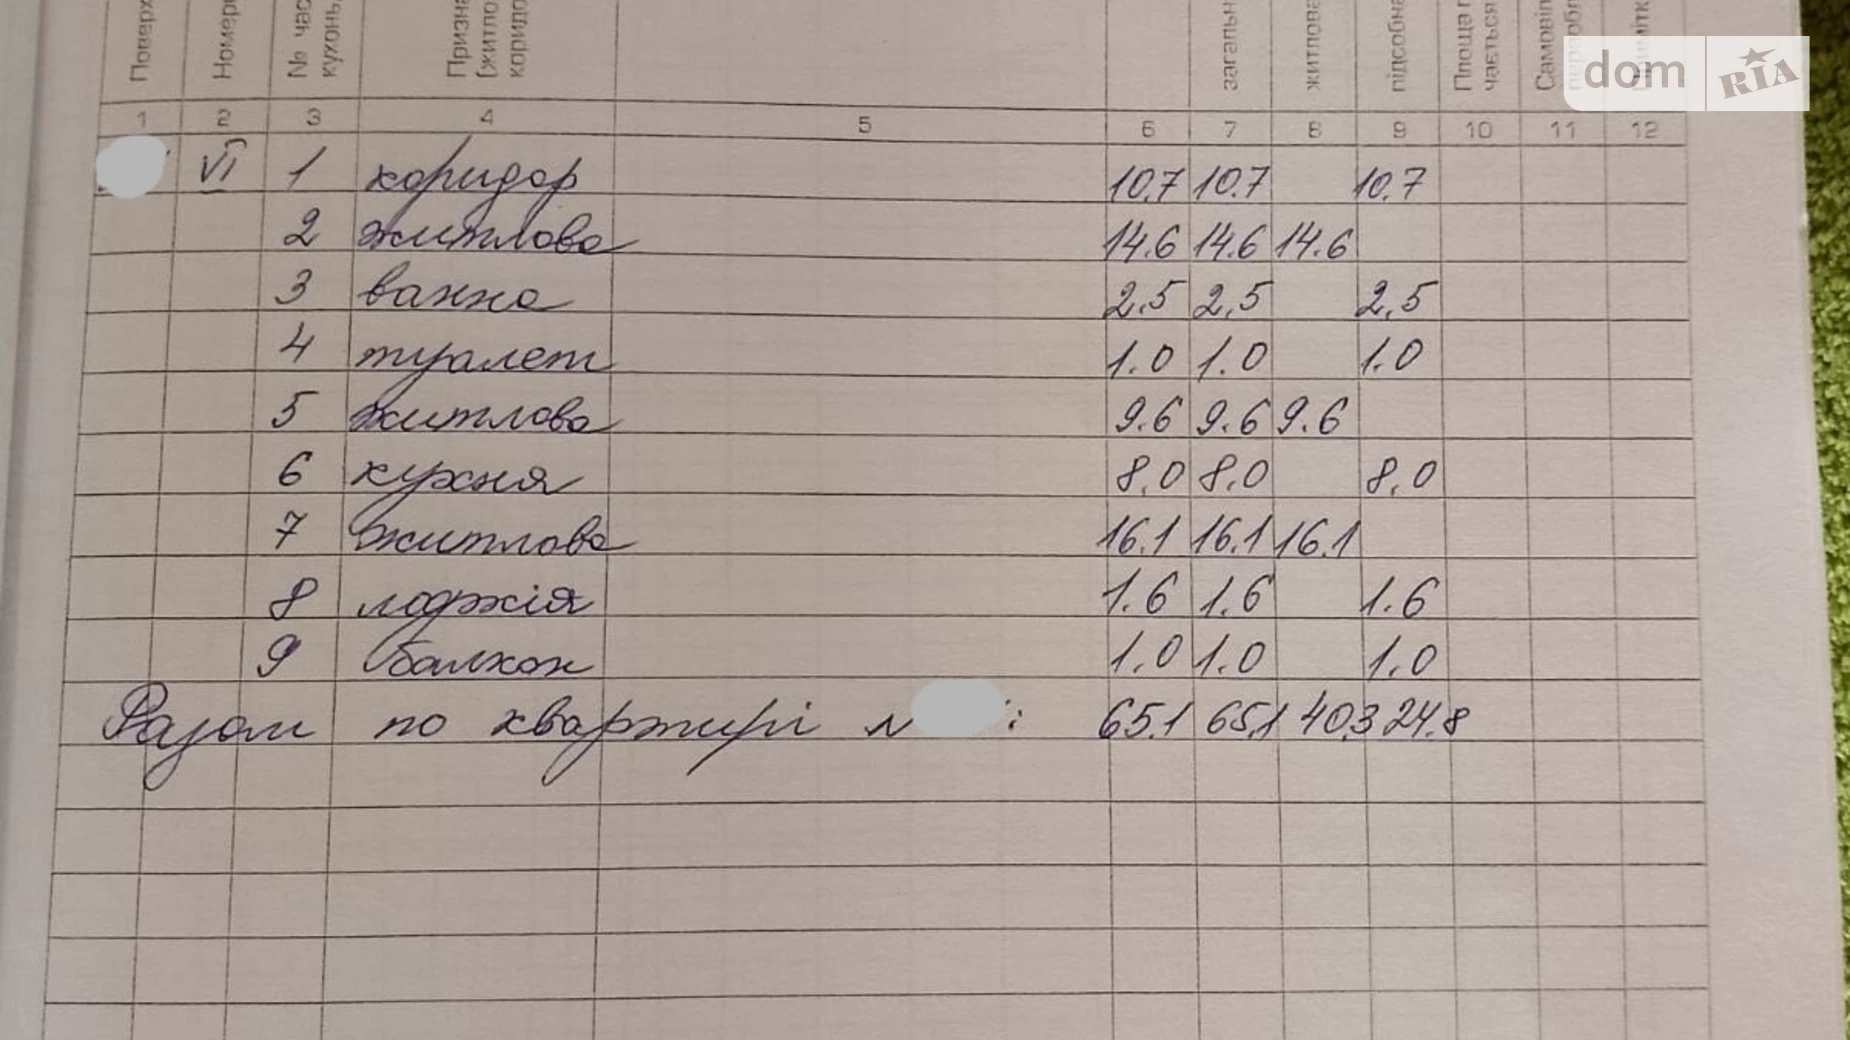 Поверх Номери № час кухонь, Призна (житло коридо загальн житлова підсобна Площа п чається Самовіл перобл Примітк
dom RIA
1 2 3 4 5 6 7 8 9 10 11 12
VI 1 коридор 10.7 10.7 10.7
2 житлова 14.6 14.6 14.6
3 ванна 2.5 2.5 2.5
4 туалет 1.0 1.0 1.0
5 житлова 9.6 9.6 9.6
6 кухня 8.0 8.0 8.0
7 житлова 16.1 16.1 16.1
8 лоджія 1.6 1.6 1.6
9 балкон 1.0 1.0 1.0
Разом по квартирі № : 65.1 65.1 40.3 24.8